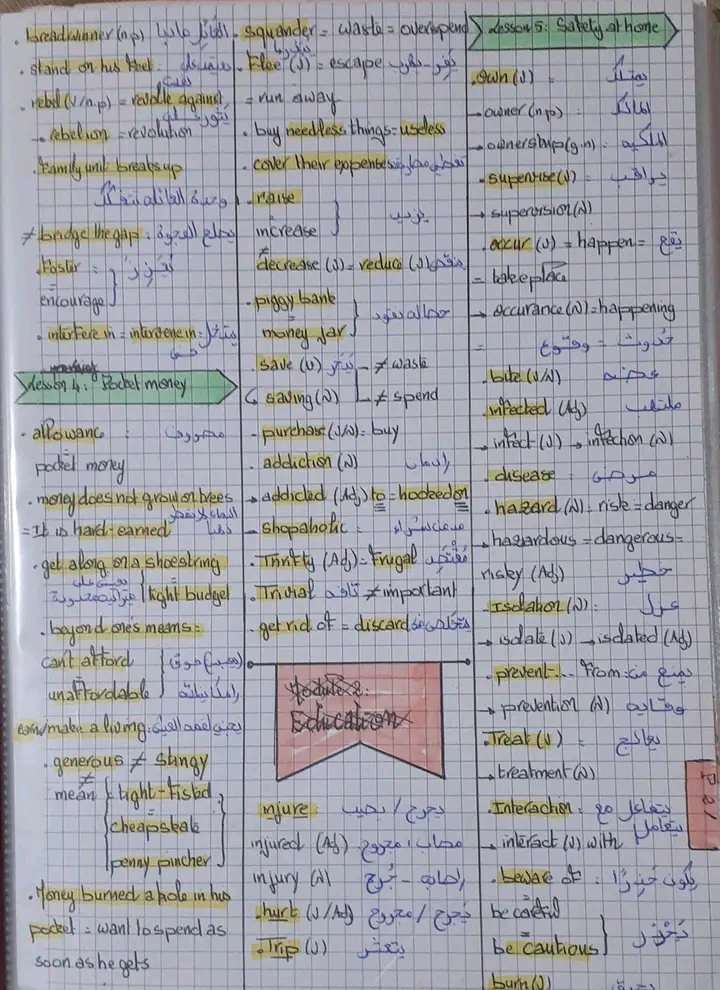 . breadwinner (n.p)
. stand on his feet :
. rebel (v/n.p) = revolte against
. rebelion = revolution
. Family unit breaks up
≠ bridge the gap :
. Foster :
=
encourage
. interfere in = intervene in :
Lesson 4: Pocket money
. allowanc :
pocket money
. money does not grow on trees
= It is hard-earned
. get along on a shoestring
=
tight budget
. beyond one's means :
can't afford
unaffordable
earn/make a living :
. generous ≠ stingy
≠
mean
tight-fisted
cheapskate
penny pincher
. Money burned a hole in his
pocket = want to spend as
soon as he gets
. squander = waste = overspend
. Flee (v) = escape
= run away
. buy needless things = useless
. cover their expenses
. raise
increase
≠
decrease (v) = reduce (v)
. piggy bank
=
money jar
. save (v) ≠ waste
saving (N) ≠ spend
- purchase (v/N) = buy
. addiction (N) إدمان
→ addicted (Adj) to = hooked on
- Shopaholic :
. Thrifty (Adj) = frugal
. Trivial تافه ≠ important
. get rid of = discard
Module 2:
Education
injure : يجرح / يصيب
injured (Adj) مصاب، مجروح
injury (N) إصابة - جُرح
. hurt (v/Adj) يجرح / مجروح
. Trip (v) يتعثر
Lesson 5: Safety at home
. own (v) =
→ owner (n.p) :
→ ownership (g.n) : الملكية
. supervise (v) = يراقب
→ supervision (N)
. occur (v) = happen = يقع
= take place
→ occurance (N) = happening
= حدوث = وقوع
. bite (v/N)
. infected (Adj)
→ infect (v) → infection (N)
. disease : مرض
. hazard (N) = risk = danger
→ hazardous = dangerous =
risky (Adj) خطير
. Isolation (N) : عزل
→ isolate (v) → isolated (Adj)
. prevent... from : يمنع من
→ prevention (N) وقاية
. Treat (v) : يعالج
→ treatment (N)
. Interaction : يتفاعل مع
→ interact (v) with يتعامل
. beware of :
=
be careful
=
be cautious
burn (v)